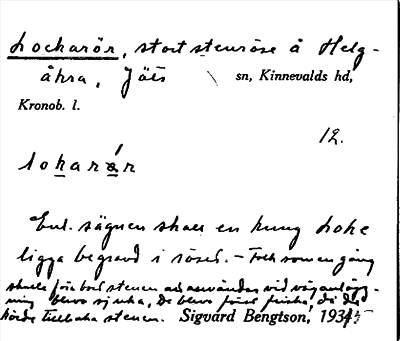 Lockarör, stort stenröse å Helg-
åkra, Jäts sn, Kinnevalds hd,
Kronob. l.
12.
lokarør
Enl. sägnen skall en kung Loke
ligga begravd i röset. – Folk som en gång
skulle föra bort stenen och använda vid väganlägg-
ning blevo sjuka, de blevo förut friska, då de
körde tillbaka stenen. Sigvard Bengtson, 1935